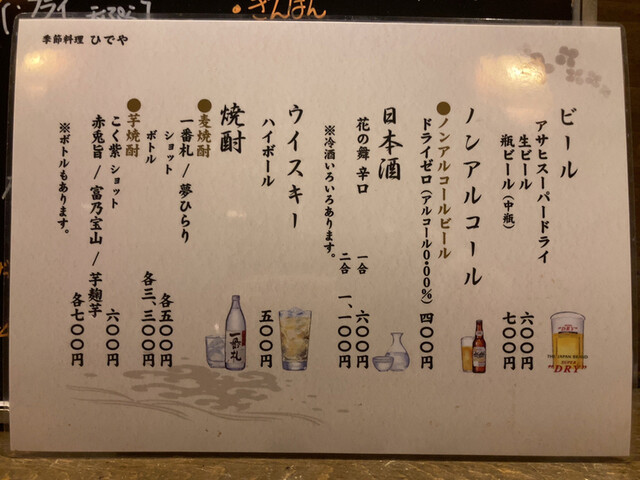 季節料理 ひでや
ビール
アサヒスーパードライ
生ビール 六〇〇円
瓶ビール（中瓶） 七〇〇円
ノンアルコール
●ノンアルコールビール
ドライゼロ（アルコール0.00%） 四〇〇円
日本酒
花の舞 辛口
一合 六〇〇円
二合 一、一〇〇円
※冷酒いろいろあります。
ウイスキー
ハイボール 五〇〇円
焼酎
●麦焼酎
一番札 / 夢ひらり
ショット 各五〇〇円
ボトル 各三、三〇〇円
●芋焼酎
こく紫 ショット 六〇〇円
赤兎旨 / 富乃宝山 / 芋麹芋 各七〇〇円
※ボトルもあります。
"DRY"
THE JAPAN BRAND
SUPER
"DRY"
一番札